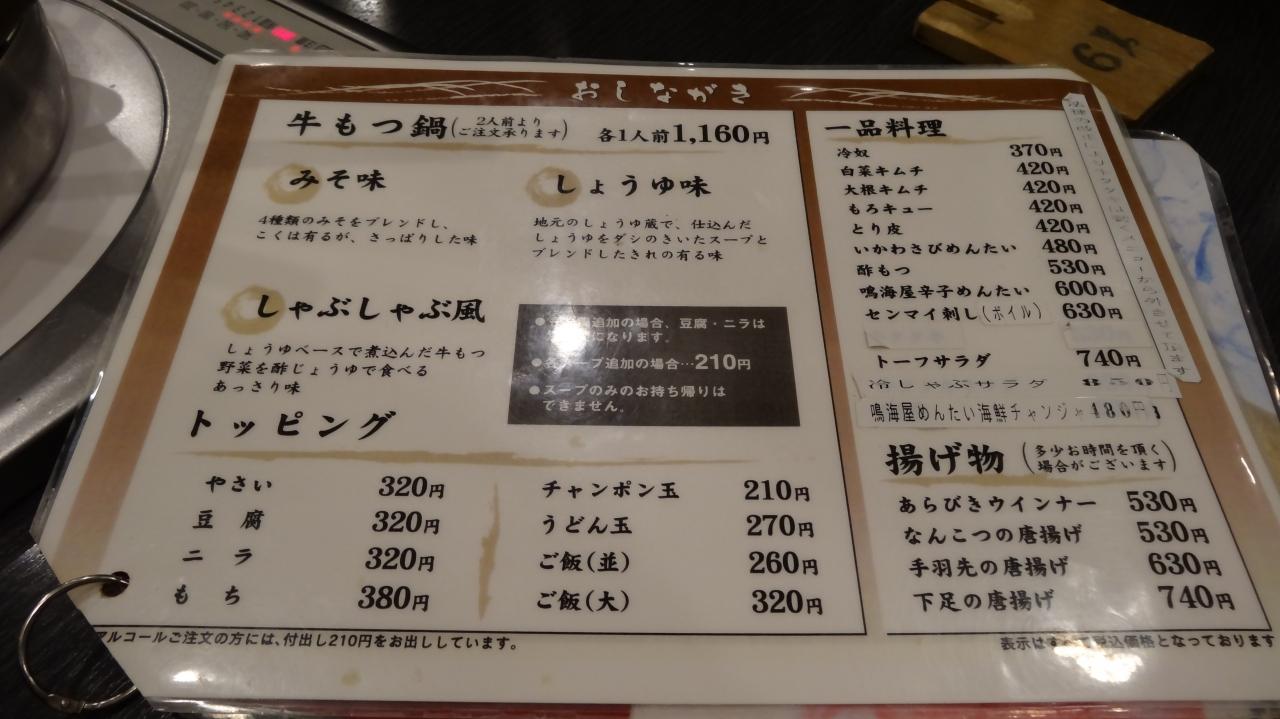 おしながき
牛もつ鍋(2人前よりご注文承ります) 各1人前1,160円
みそ味
4種類のみそをブレンドし、
こくは有るが、さっぱりした味
しょうゆ味
地元のしょうゆ蔵で、仕込んだ
しょうゆをダシのきいたスープと
ブレンドしたきれの有る味
しゃぶしゃぶ風
しょうゆベースで煮込んだ牛もつ
野菜を酢じょうゆで食べる
あっさり味
追加の場合、豆腐・ニラは
になります。
スープ追加の場合…210円
●スープのみのお持ち帰りは
できません。
トッピング
やさい 320円
豆腐 320円
ニラ 320円
もち 380円
チャンポン玉 210円
うどん玉 270円
ご飯(並) 260円
ご飯(大) 320円
アルコールご注文の方には、付出し210円をお出ししています。
一品料理
冷奴 370円
白菜キムチ 420円
大根キムチ 420円
もろキュー 420円
とり皮 420円
いかわさびめんたい 480円
酢もつ 530円
鳴海屋辛子めんたい 600円
センマイ刺し(ボイル) 630円
トーフサラダ 740円
冷しゃぶサラダ 850
鳴海屋めんたい海鮮チャンジャ 480円
揚げ物(多少お時間を頂く場合がございます)
あらびきウインナー 530円
なんこつの唐揚げ 530円
手羽先の唐揚げ 630円
下足の唐揚げ 740円
表示はすべて税込価格となっております
19